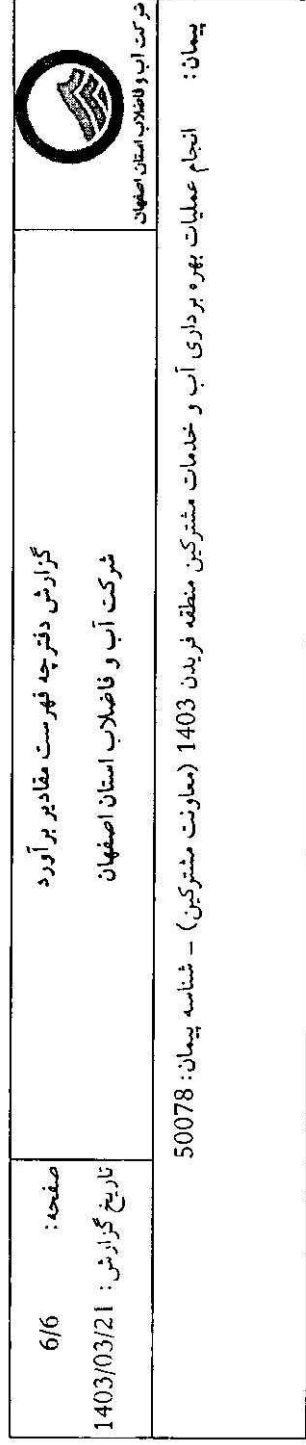 شرکت آب و فاضلاب استان اصفهان
گزارش دفترچه فهرست مقادیر برآورد
شرکت آب و فاضلاب استان اصفهان
صفحه: 6/6
تاریخ گزارش: 1403/03/21
پیمان: انجام عملیات بهره برداری آب و خدمات مشترکین منطقه فریدن 1403 (معاونت مشترکین) - شناسه پیمان: 50078